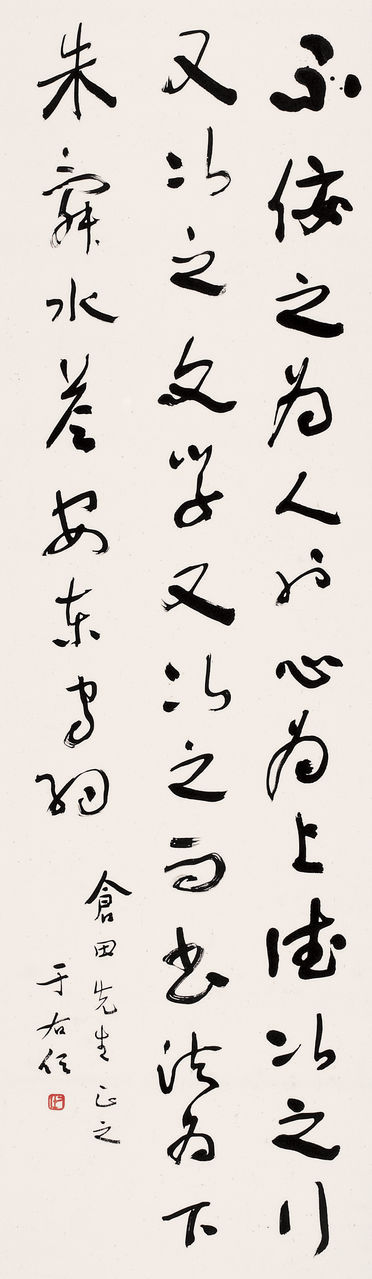 不佞之為人存心為上德次之行
又次之文學又次之而書法為下
朱舜水答安東守約
倉田先生正之
于右任